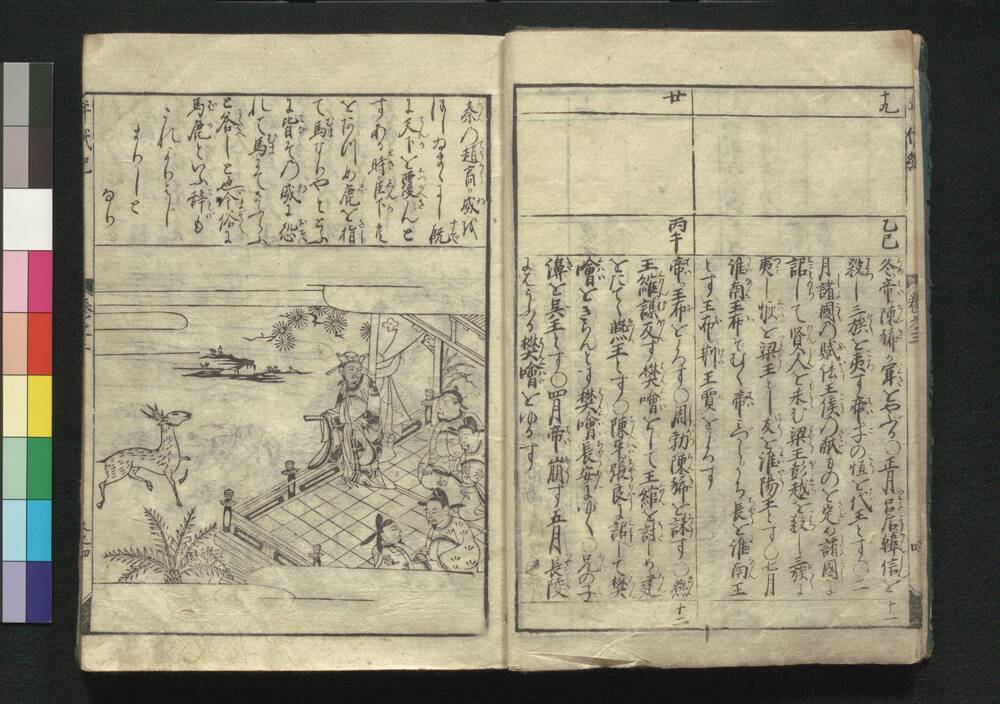 十九
乙巳
冬帝陳豨が軍をやぶる〇正月呂后韓信を
殺し三族を夷す帝子の恒を代王とす〇二
月諸國の賦法王侯の献ものを定め諸國に
詔して賢人を求む梁王彭越を殺し三族を
夷し恢を梁王とし友を淮陽王とす〇七月
淮南王布そむく帝みづから長を淮南王
とす王布荊王賈をころす
十一
廿
丙午
帝王布をころす〇周勃陳豨を誅す〇燕
王綰謀反す樊噲をして王綰を討しめ建
をたてゝ燕王とす〇陳平張良に詔して樊
噲をきらんとす樊噲長安にゆく〇兄の子
濞を呉王とす〇四月帝崩す五月長陵
樊噲をゆるす
十二
秦の趙高威を
ほしゐまゝにし既
に天下を覆んと
すある時臣下
をあつめ鹿を指
て馬なりやととふ
に皆その威に恐
れて馬
と答しと也今俗に
馬鹿といふ辞も
これよりはじ
まりしと
なり